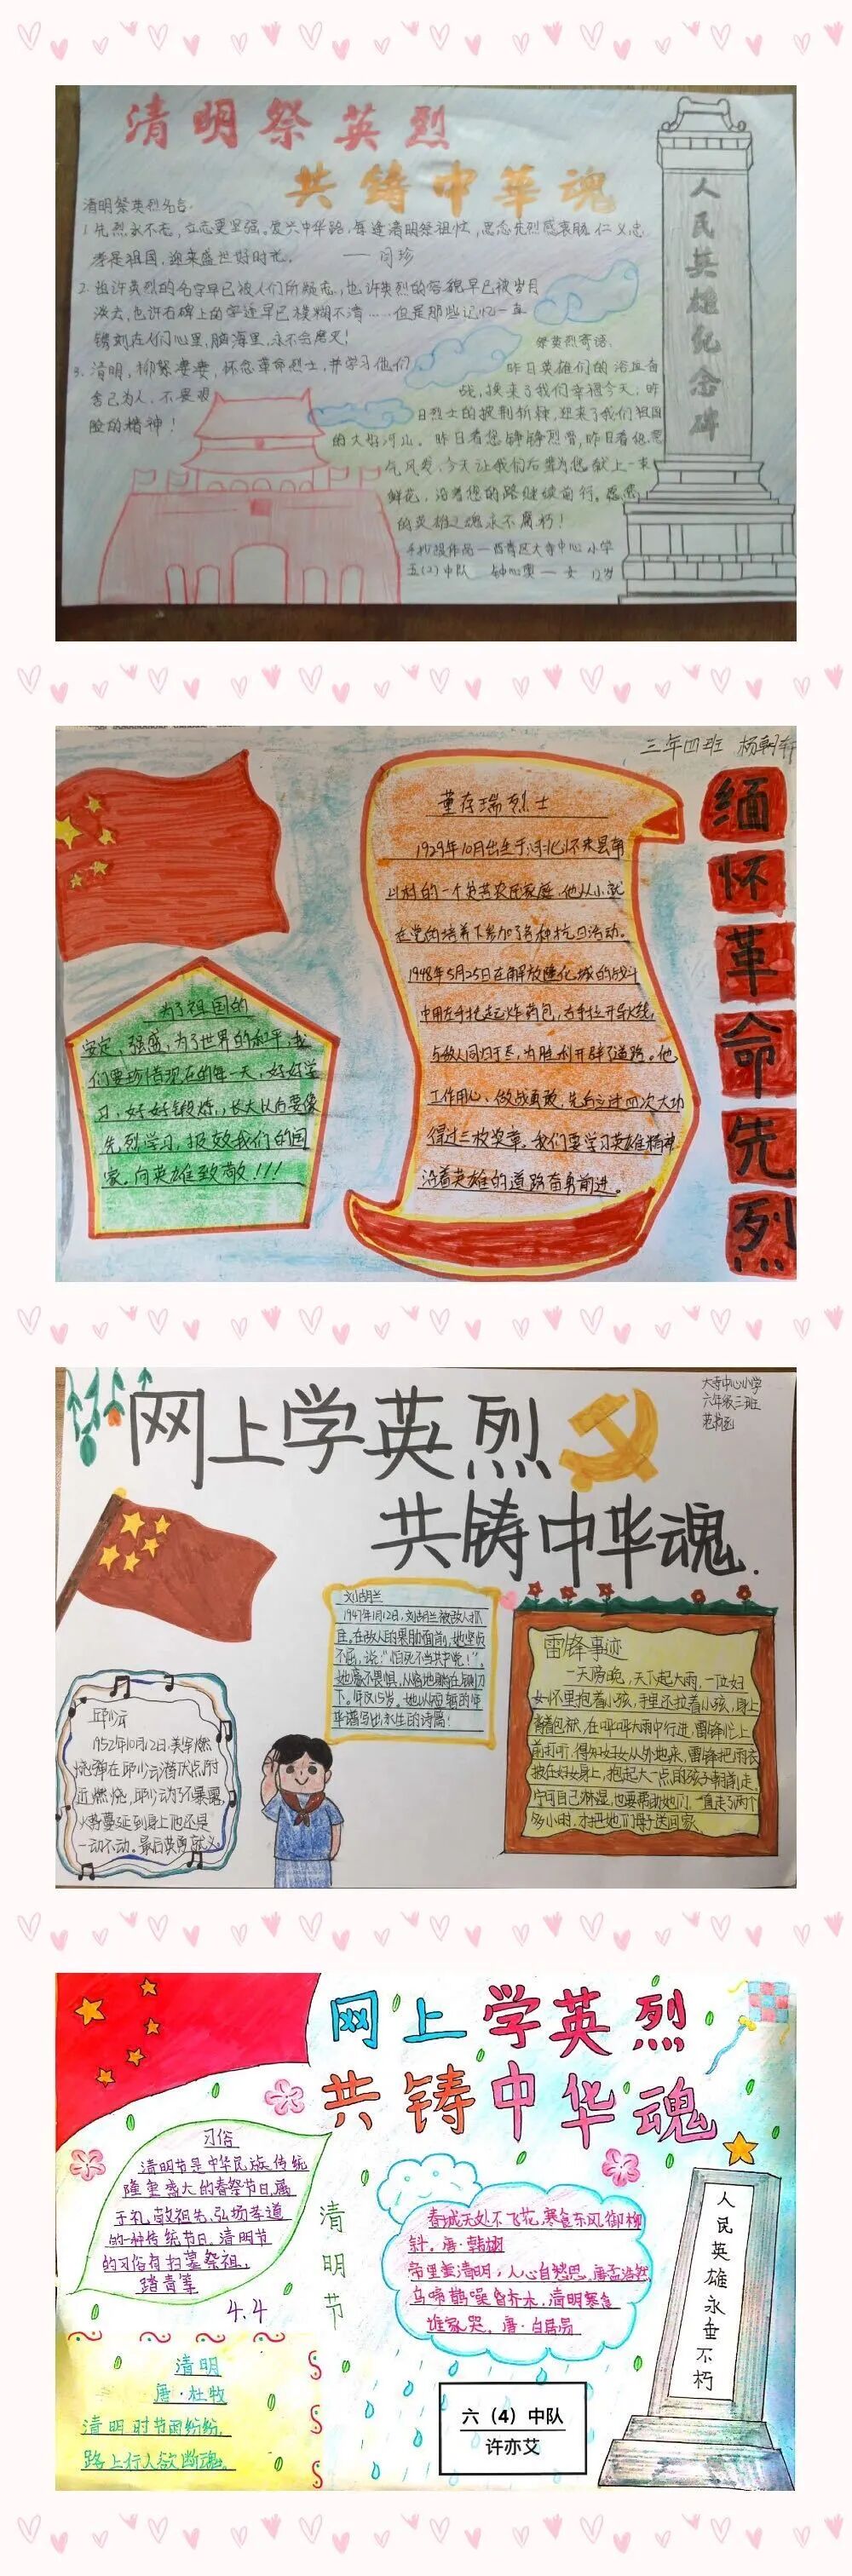 清明祭英烈
共铸中华魂
清明祭英烈名言:
1.先烈永不忘,立志更坚强。爱兴中华路,每逢清明祭祖忙,思念先烈感衷肠,仁义忠
孝是祖国,迎来盛世好时光。
2.也许英烈的名字早已被人们所疑忘,也许英烈的容貌早已被岁月
淡去,也许石碑上的字迹早已模糊不清……但是那些记忆一直
镌刻在人们心里,脑海里,永不会磨灭!
3.清明,柳絮凄凄,怀念革命烈士,并学习他们
舍己为人,不畏艰
险的精神!
祭英烈寄语:
昨日英雄们的浴血奋
战,换来了我们幸福今天,昨
日烈士的披荆斩棘,迎来了我们祖国
的大好河山。昨日看您铮铮烈骨,昨日看您意
气风发,今天让我们后辈为您献上一束
鲜花,沿着您的路继续前行。愿您
的英雄之魂永不腐朽!
手抄报作品—西青区大寺中心小学
五(2)中队 — 女 12岁
人民英雄纪念碑
三年四班
缅怀革命先烈
董存瑞烈士
1929年10月出生于河北怀来县南
山村的一个贫苦农民家庭,他从小就
在党的培养下参加了各种抗日活动。
1948年5月25日在解放隆化城的战斗
中用左手托起炸药包,右手拉开导火线,
与敌人同归于尽,为胜利开辟了道路。他
工作用心、做战勇敢,先后立过四次大功
得过三枚奖章。我们要学习英雄精神
沿着英雄的道路奋勇前进。
为了祖国的
安定、强盛,为了世界的和平,我
们要珍惜现在的每一天,好好学
习,好好锻炼,长大以后要像
先烈学习,报效我们的国
家。向英雄致敬!!!
网上学英烈
共铸中华魂.
大寺中心小学
六年级三班
刘胡兰
1947年1月12日,刘胡兰被敌人抓
住,在敌人的威胁面前,她坚贞
不屈,说:“怕死不当共产党!”,
她毫不畏惧,从容地躺在铡刀
下。年仅15岁。她以短暂的年
华谱写出永生的诗篇!
雷锋事迹
一天傍晚,天下起大雨,一位妇
女怀里抱着小孩,手里还拉着小孩,身上
背着包袱,在哗哗大雨中行进,雷锋忙上
前打听,得知妇女从外地来,雷锋把雨衣
披在妇女身上,抱起大一点的孩子朝前走,
宁可自己淋湿,也要帮助她们,一直走了两个
多小时,才把她们母子送回家。
邱少云
1952年10月12日,美军燃
烧弹在邱少云潜伏点附
近燃烧,邱少云为了不暴露,
火势蔓延到身上他还是
一动不动。最后英勇就义
网上学英烈
共铸中华魂
习俗
清明节是中华民族传统
隆重盛大的春祭节日,属
于礼敬祖先、弘扬孝道
的一种传统节日。清明节
的习俗有扫墓祭祖,
踏青等
4.4
清明节
春城无处不飞花,寒食东风御柳
斜。唐·韩翃
帝里重清明,人心自愁思。唐孟浩然
乌啼鹊噪昏乔木,清明寒食
谁家哭。唐·白居易
清明
唐·杜牧
清明时节雨纷纷,
路上行人欲断魂。
人民英雄永垂不朽
六（4）中队
许亦艾